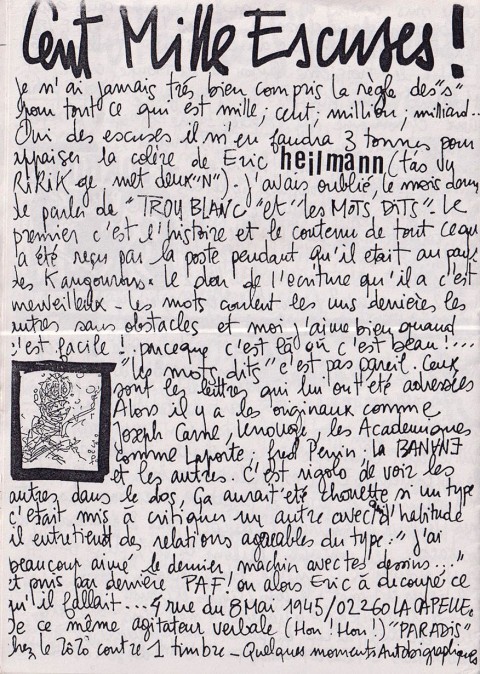 Cent Mille Escuses !
je n'ai jamais très bien compris la règle des "s"
pour tout ce qui est mille ; cent ; million ; milliard..
Oui des escuses il m'en faudra 3 tonnes pour
appaiser la colère de Eric heilmann (t'as vu
RiRiK ge met deux "N"). J'avais oublié, le mois dern
de parler de "TROU BLANC" et "les MOTS DITS". Le
premier c'est l'histoire et le contenu de tout ce qu
l'a été reçu par la poste pendant qu'il était au pays
des Kangourous. Le don de l'écriture qu'il a c'est
merveilleux - les mots coulent les uns derrières les
autres sans obstacles et moi j'aime bien quand
c'est facile !.. puceque c'est là où c'est beau !...
"les mots dits" c'est pas pareil. Ceux
sont les lettres qui lui ont été adressées
Alors il y a les originaux comme
Joseph Carne, Lenouvo, les Academiques
comme Laporte ; fred Pessin ; la BANANE
et les autres. C'est rigolo de voir les
autres dans le dos, Ça aurait été chouette si un type
c'était mis à critiquer un autre avec qui d'habitude
il entretient des relations agréables du type : "j'ai
beaucoup aimé le dernier machin avec tes dessins..."
et puis par derrière PAF ! ou alors Eric à découpé ce
qu'il fallait... 4 rue du 8 Mai 1945/02260 LA CAPELLE.
De ce même agitateur verbale (Hon ! Hon !) "PARADiS"
chez le zozo contre 1 timbre - Quelques moments Autobiographiques